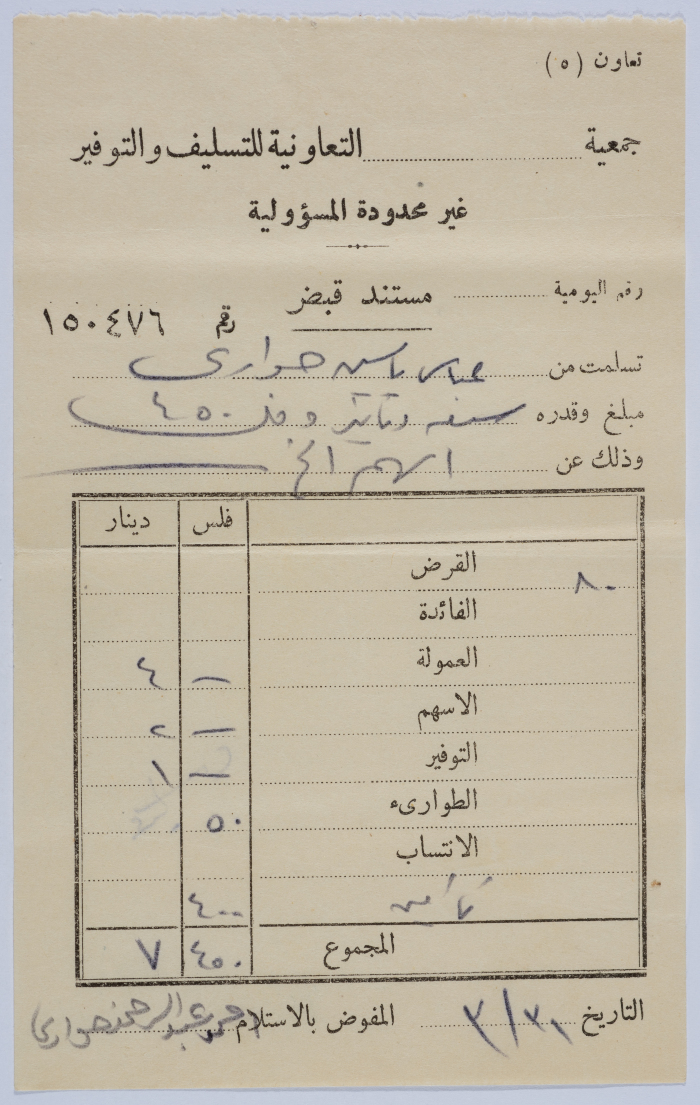 تعاون (٥)
جمعية التعاونية للتسليف والتوفير
غير محدودة المسؤولية
رقم اليومية
مستند قبض
رقم ١٥٠٤٧٦
تسلمت من عباس ياسين حواري
مبلغ وقدره سبعة دنانير و فلس ٤٥٠
وذلك عن اسهم الخ
فلس دينار
القرض ٨٠
الفائدة
العمولة — ٤
الاسهم — ٢
التوفير — ١
الطوارىء ٥٠
الانتساب
تأمين ٤٠٠
المجموع ٤٥٠ ٧
التاريخ ٣١/٣ المفوض بالاستلام عبد الرحمن حواري